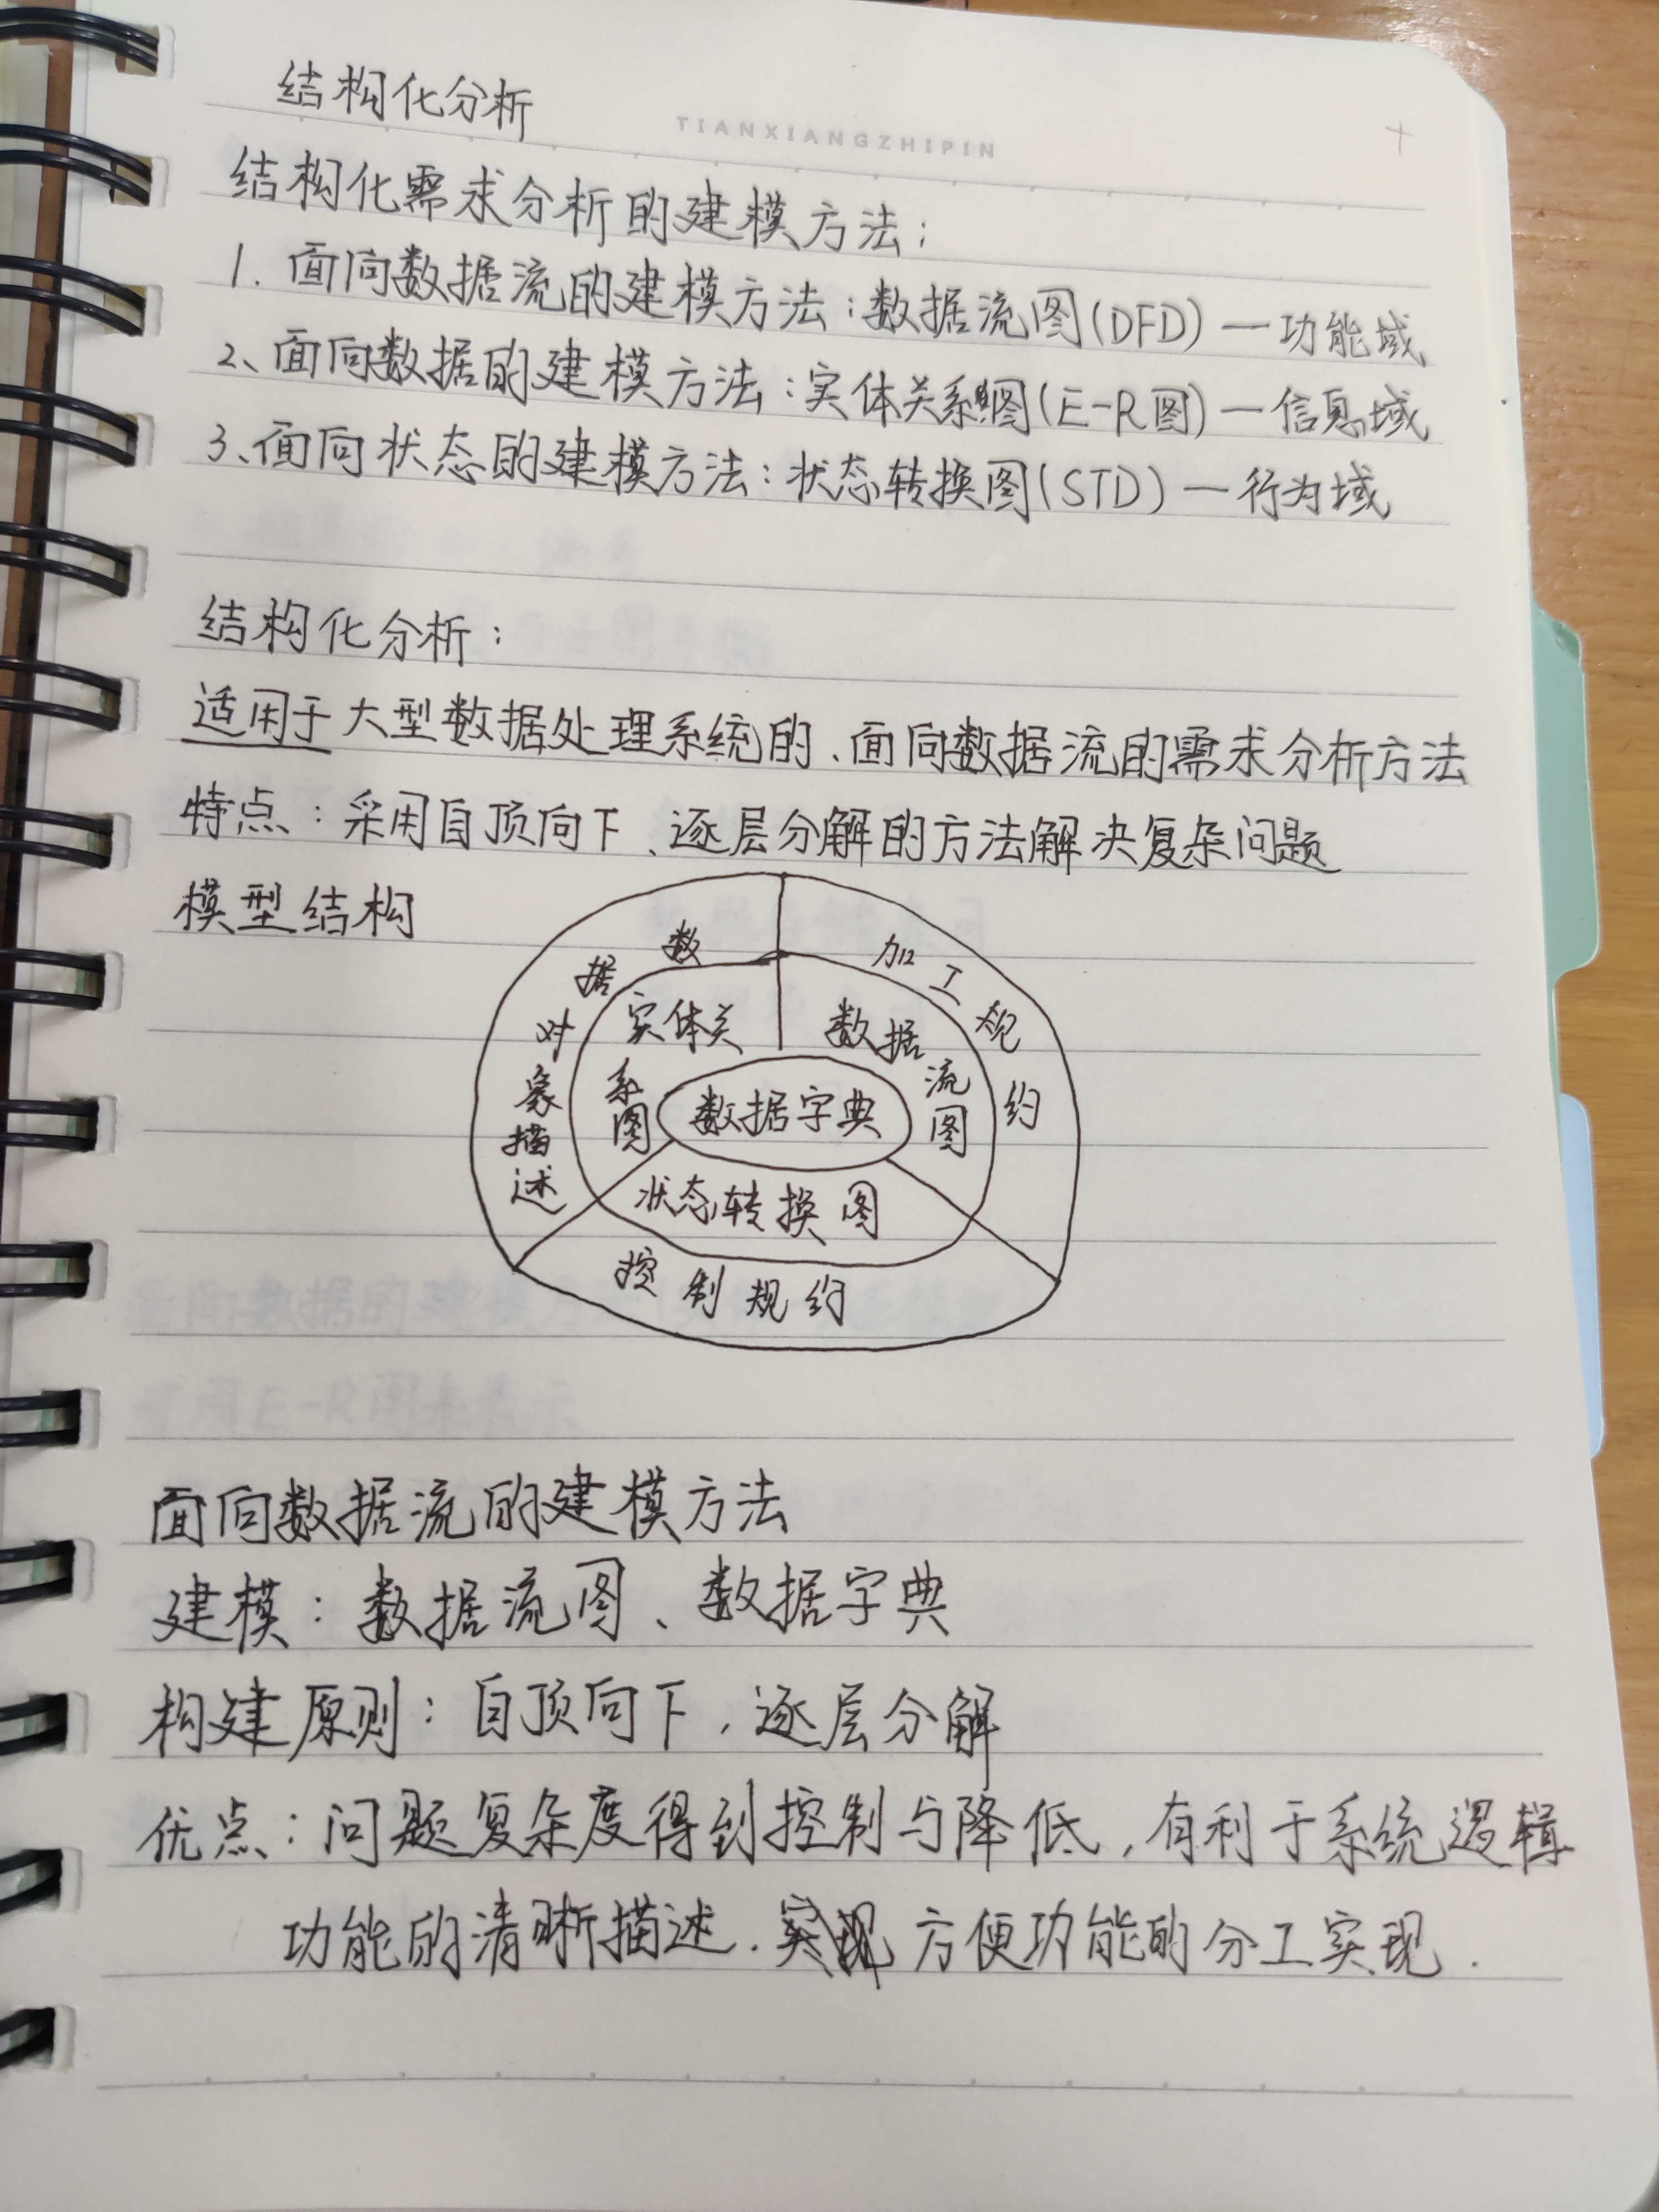 结构化分析
TIANXIANGZHIPIN
结构化需求分析的建模方法：
1. 面向数据流的建模方法：数据流图(DFD) — 功能域
2、面向数据的建模方法：实体关系图(E-R图) — 信息域
3、面向状态的建模方法：状态转换图(STD) — 行为域
结构化分析：
适用于大型数据处理系统的、面向数据流的需求分析方法
特点：采用自顶向下、逐层分解的方法解决复杂问题
模型结构
数据对象描述
加工规约
实体关系图
数据流图
数据字典
状态转换图
控制规约
面向数据流的建模方法
建模：数据流图、数据字典
构建原则：自顶向下，逐层分解
优点：问题复杂度得到控制与降低，有利于系统逻辑
功能的清晰描述．方便功能的分工实现．